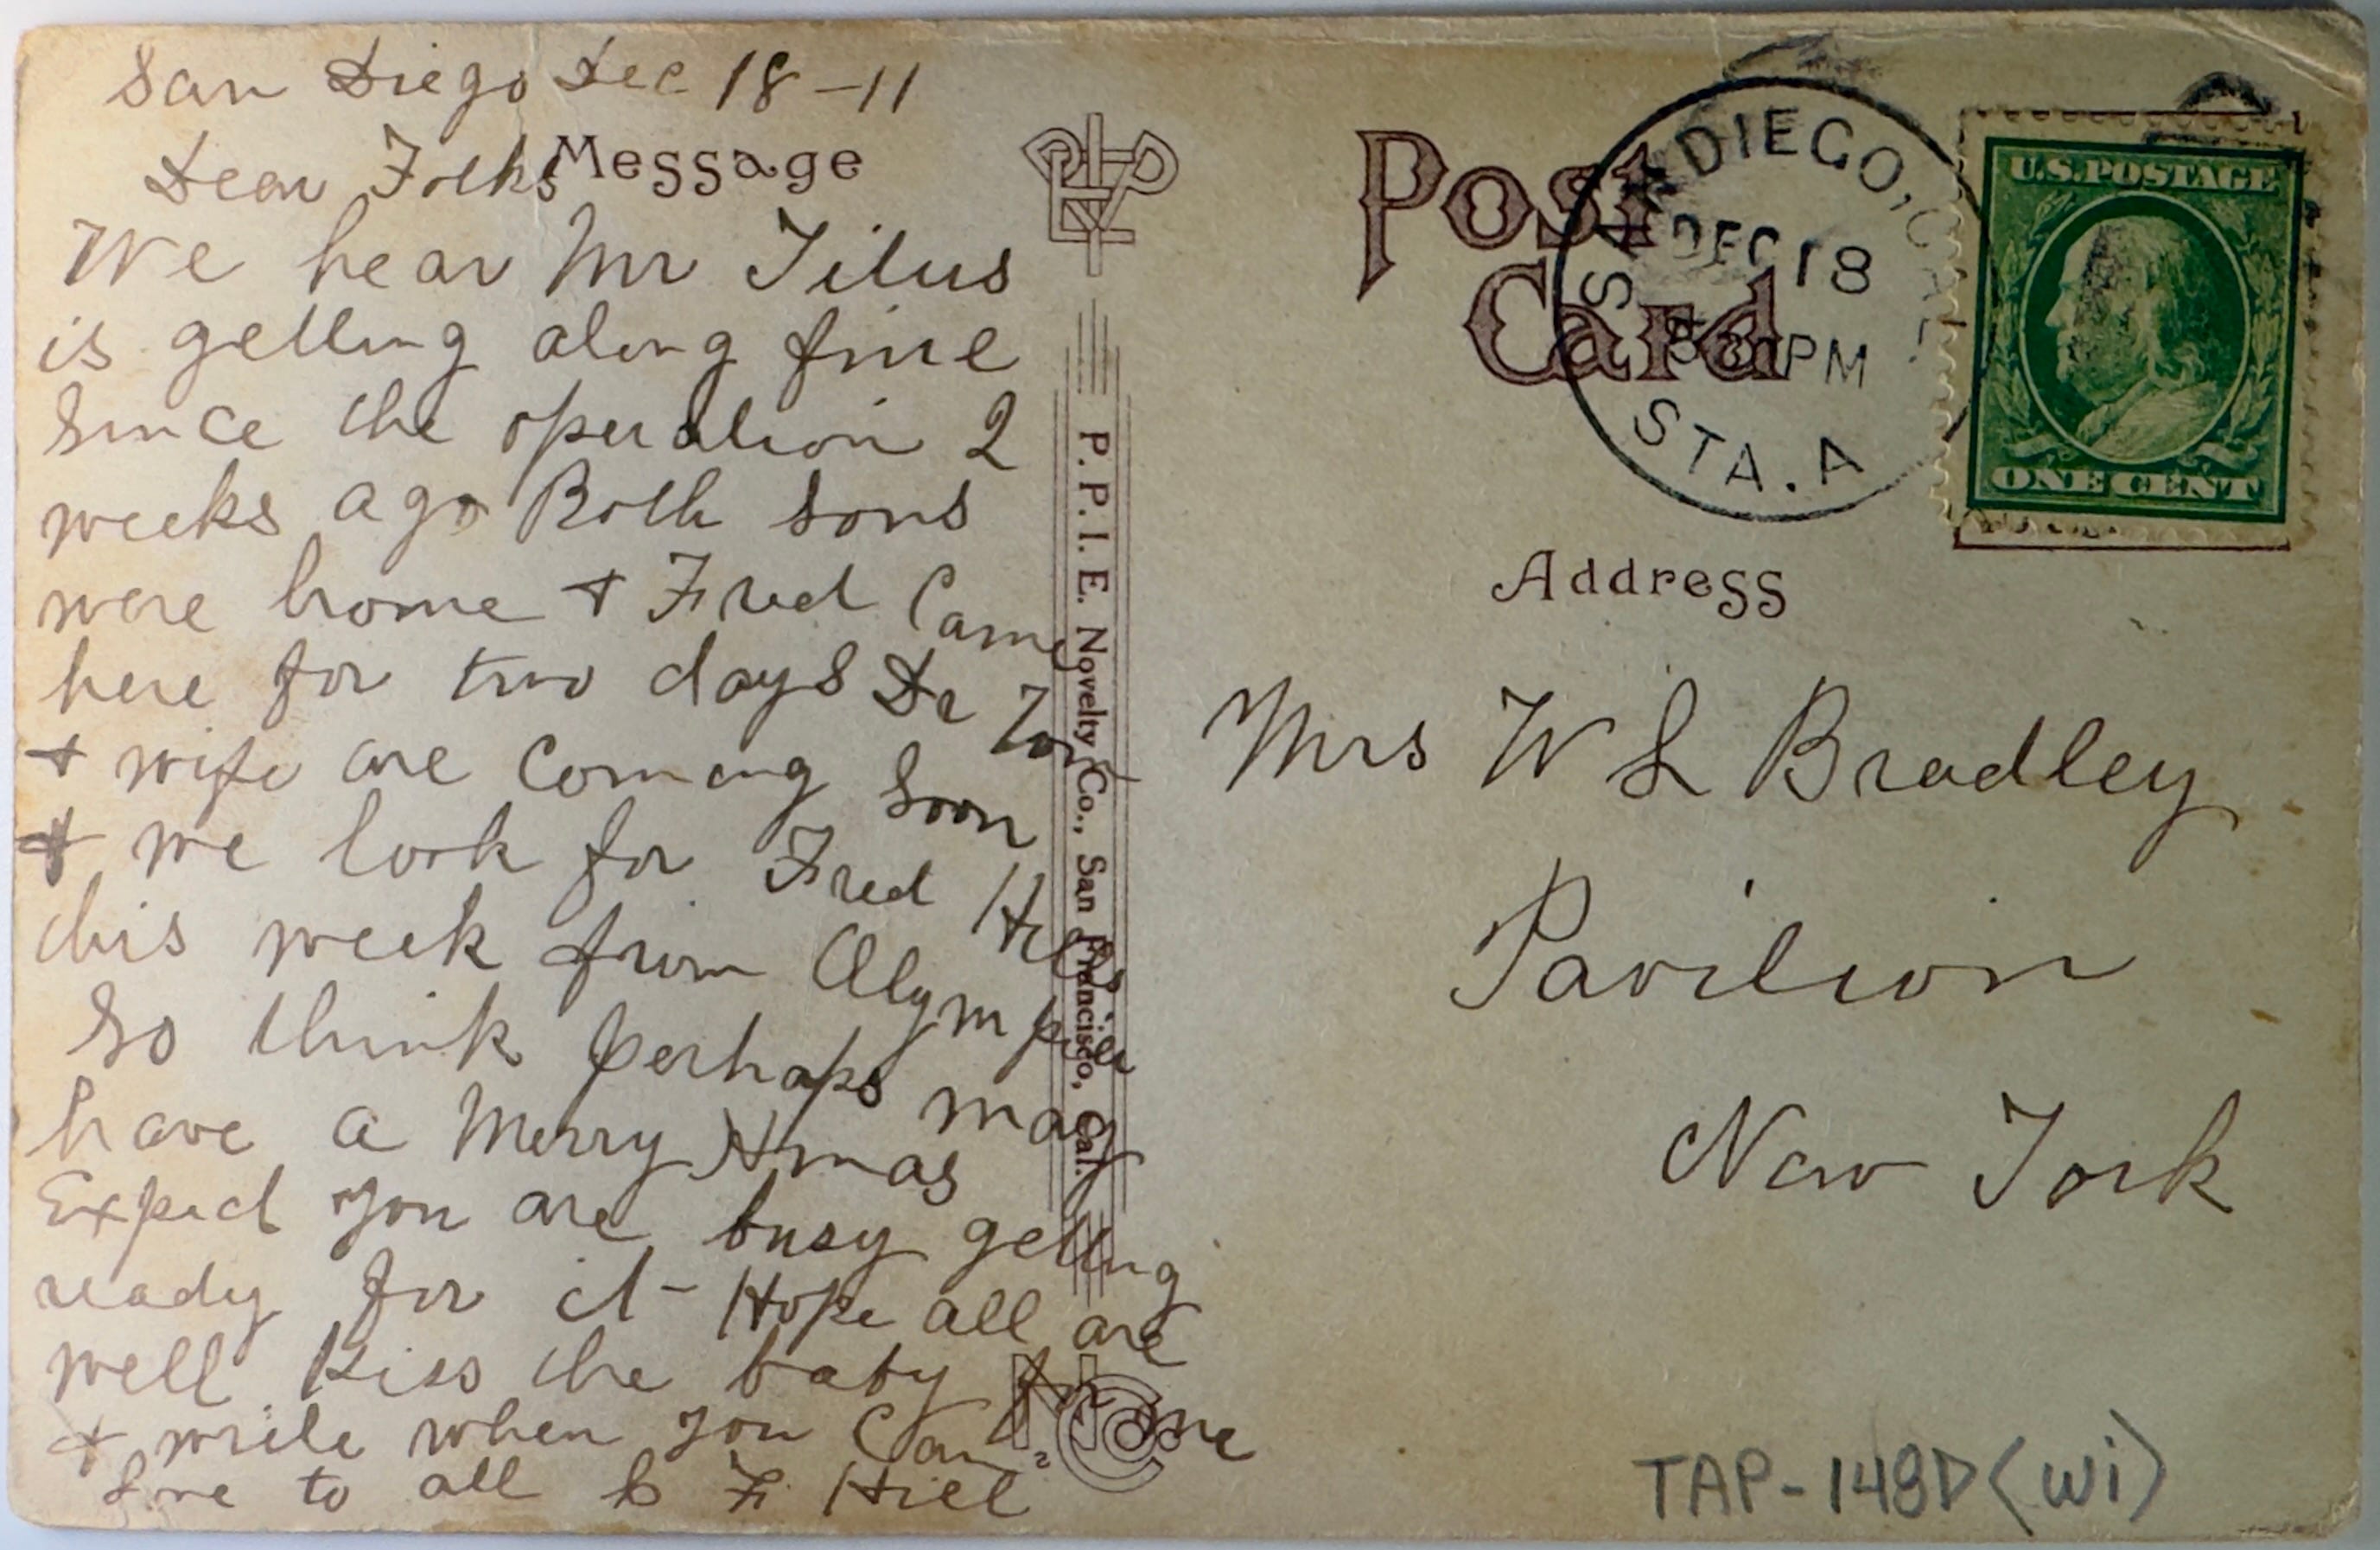 San Diego Dec 18-11
Message
Dear Folks
We hear Mr Titus
is getting along fine
since the operation 2
weeks ago Both sons
were home + Fred Came
here for two days Dr
+ wife are Coming soon
+ we look for Fred Hills
this week from Olympia
So think perhaps may
have a Merry Xmas
Expect you are busy getting
ready for it - Hope all are
well Kiss the baby for me
+ write when you Can
Love to all F Hill
P. P. I. E. Novelty Co., San Francisco, Cal.
Post
Card
SAN DIEGO, CAL.
DEC 18
PM
STA. A
U.S. POSTAGE
ONE CENT
Address
Mrs W L Bradley
Pavilion
New York
TAP-148D (wi)